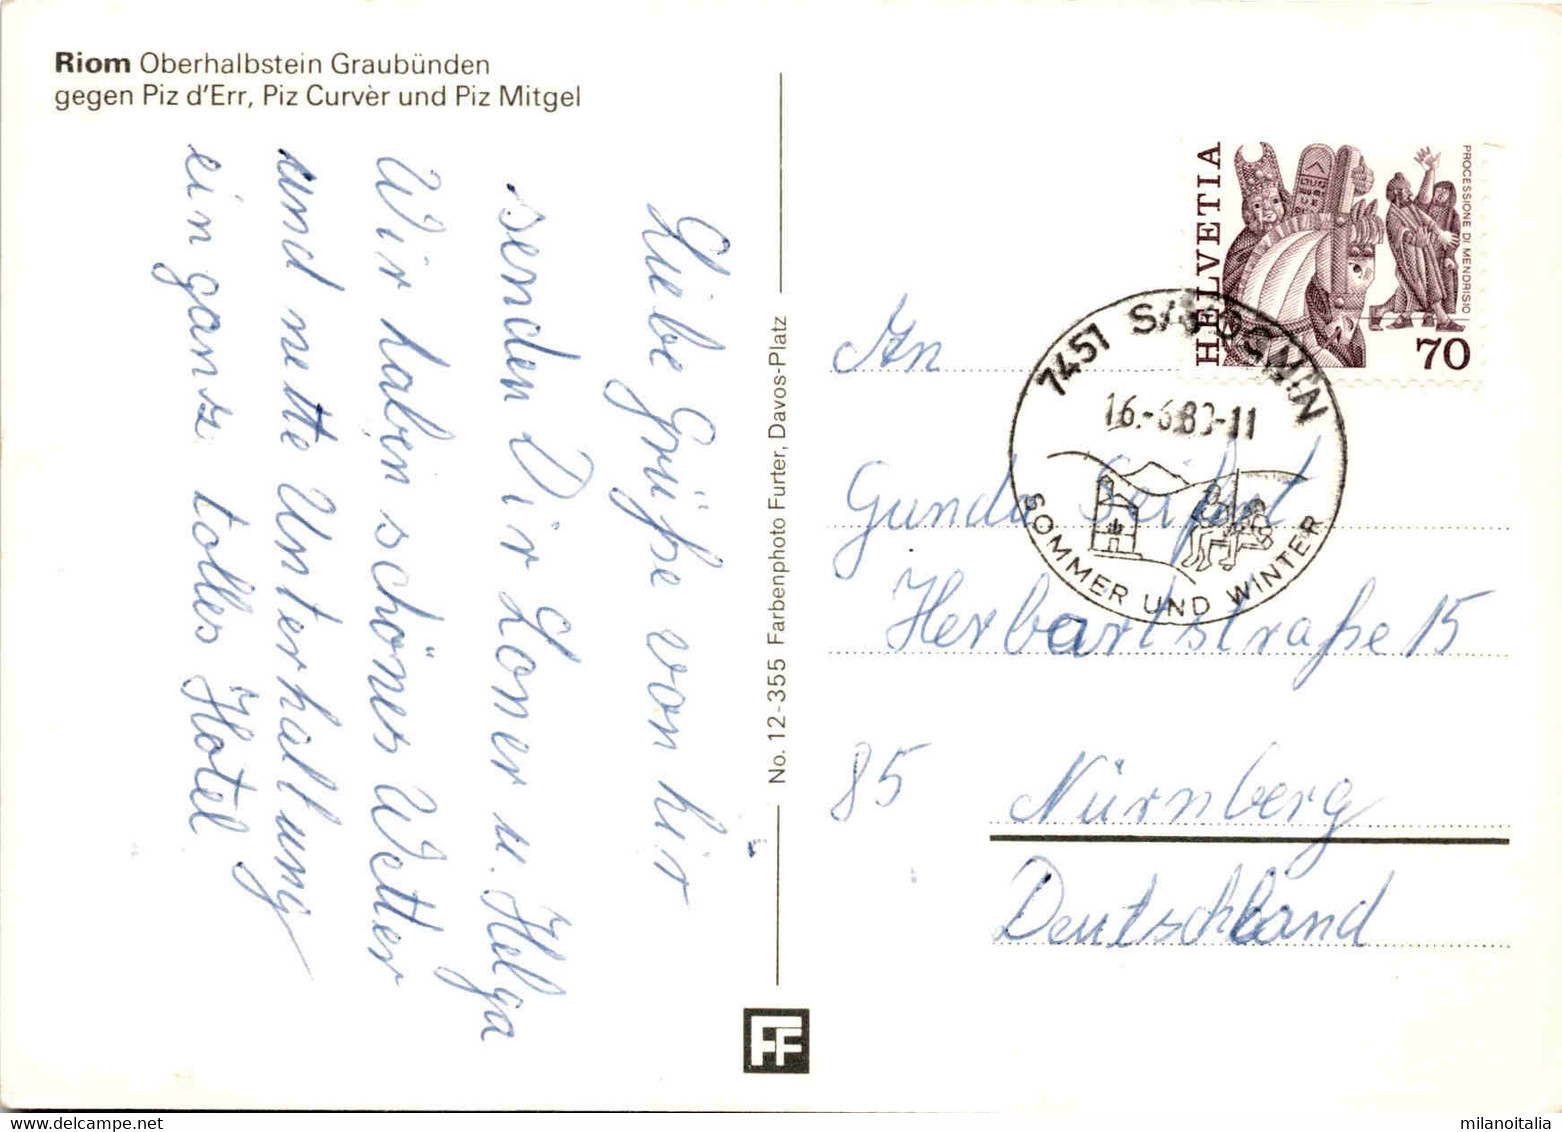 Riom Oberhalbstein Graubünden
gegen Piz d'Err, Piz Curvèr und Piz Mitgel
Liebe Grüße von hir
senden Dir Loner u. Helga
Wir haben schönes Wetter
und nette Unterhaltung
ein ganz tolles Hotel
No. 12-355 Farbenphoto Furter, Davos-Platz
FF
HELVETIA
PROCESSIONE DI MENDRISIO
70
7451 SAVOGNIN
SOMMER UND WINTER
An
Gunda Seifert
Herbartstraße 15
85 Nürnberg
Deutschland
milanoitalia